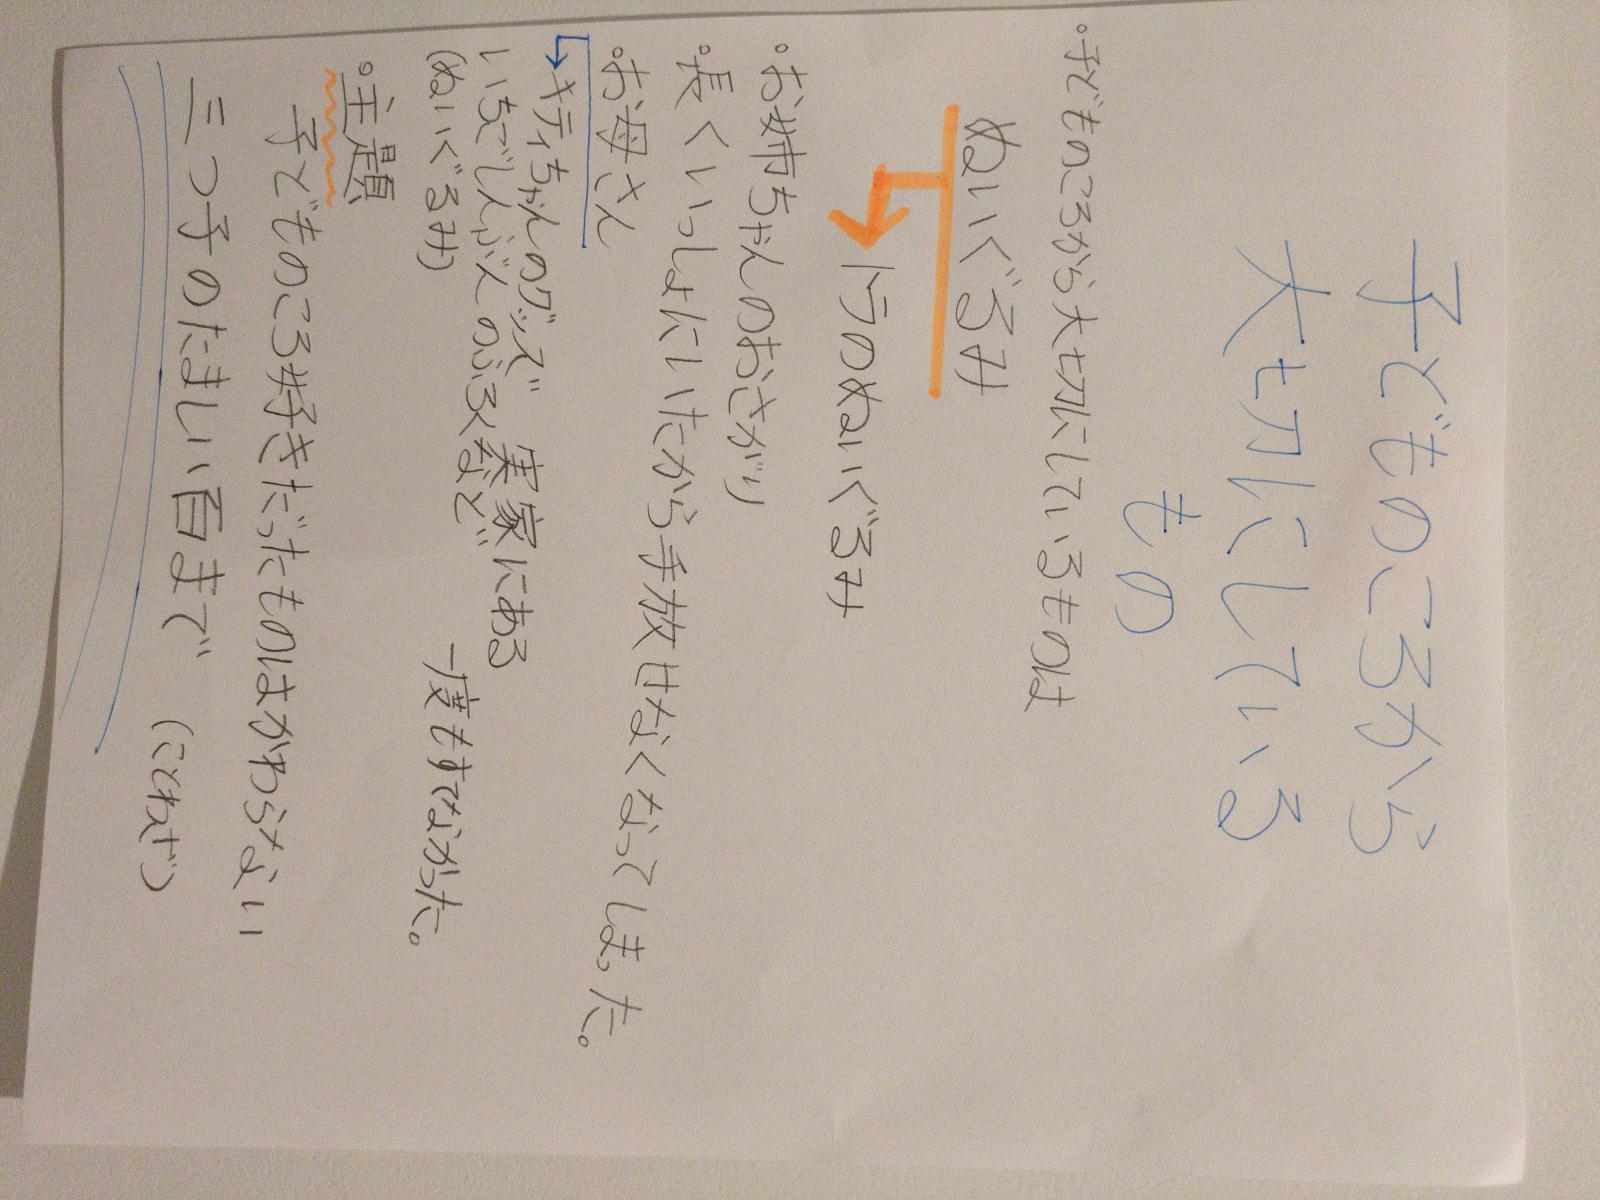 子どものころから
大切にしている
もの
・子どものころから大切にしているものは
ぬいぐるみ
トラのぬいぐるみ
・お姉ちゃんのおさがり
・長くいっしょにいたから手放せなくなってしまった。
・お母さん
キティちゃんのグッズ 実家にある
いちごしんぶんのふろくなど
(ぬいぐるみ) 一度もすてなかった。
・主題
子どものころ好きだったものはかわらない
三つ子のたましい百まで (ことわざ)